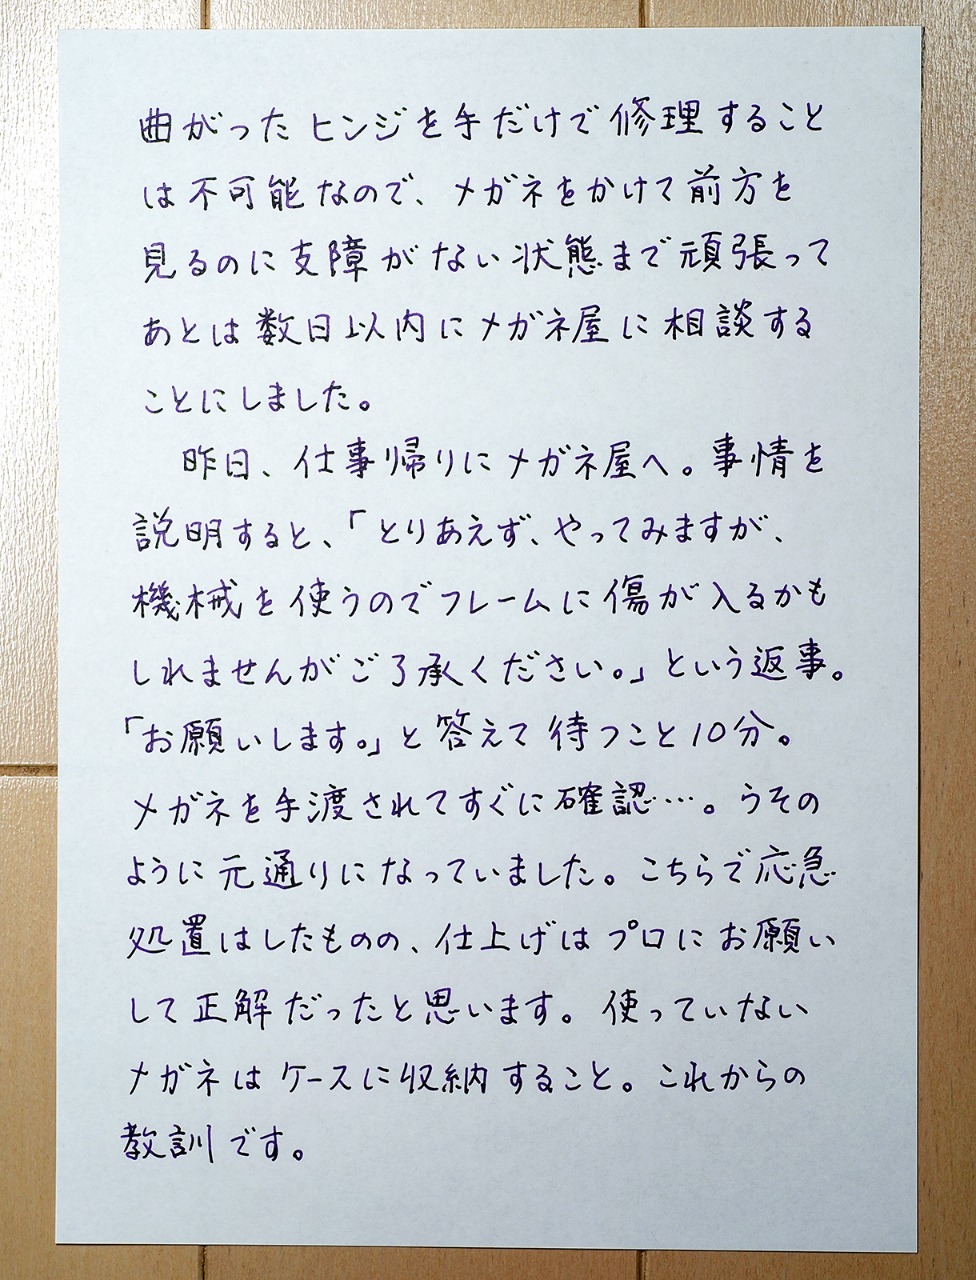 曲がったヒンジを手だけで修理すること
は不可能なので、メガネをかけて前方を
見るのに支障がない状態まで頑張って
あとは数日以内にメガネ屋に相談する
ことにしました。
昨日、仕事帰りにメガネ屋へ。事情を
説明すると、「とりあえず、やってみますが、
機械を使うのでフレームに傷が入るかも
しれませんがご了承ください。」という返事。
「お願いします。」と答えて待つこと10分。
メガネを手渡されてすぐに確認…。うその
ように元通りになっていました。こちらで応急
処置はしたものの、仕上げはプロにお願い
して正解だったと思います。使っていない
メガネはケースに収納すること。これからの
教訓です。